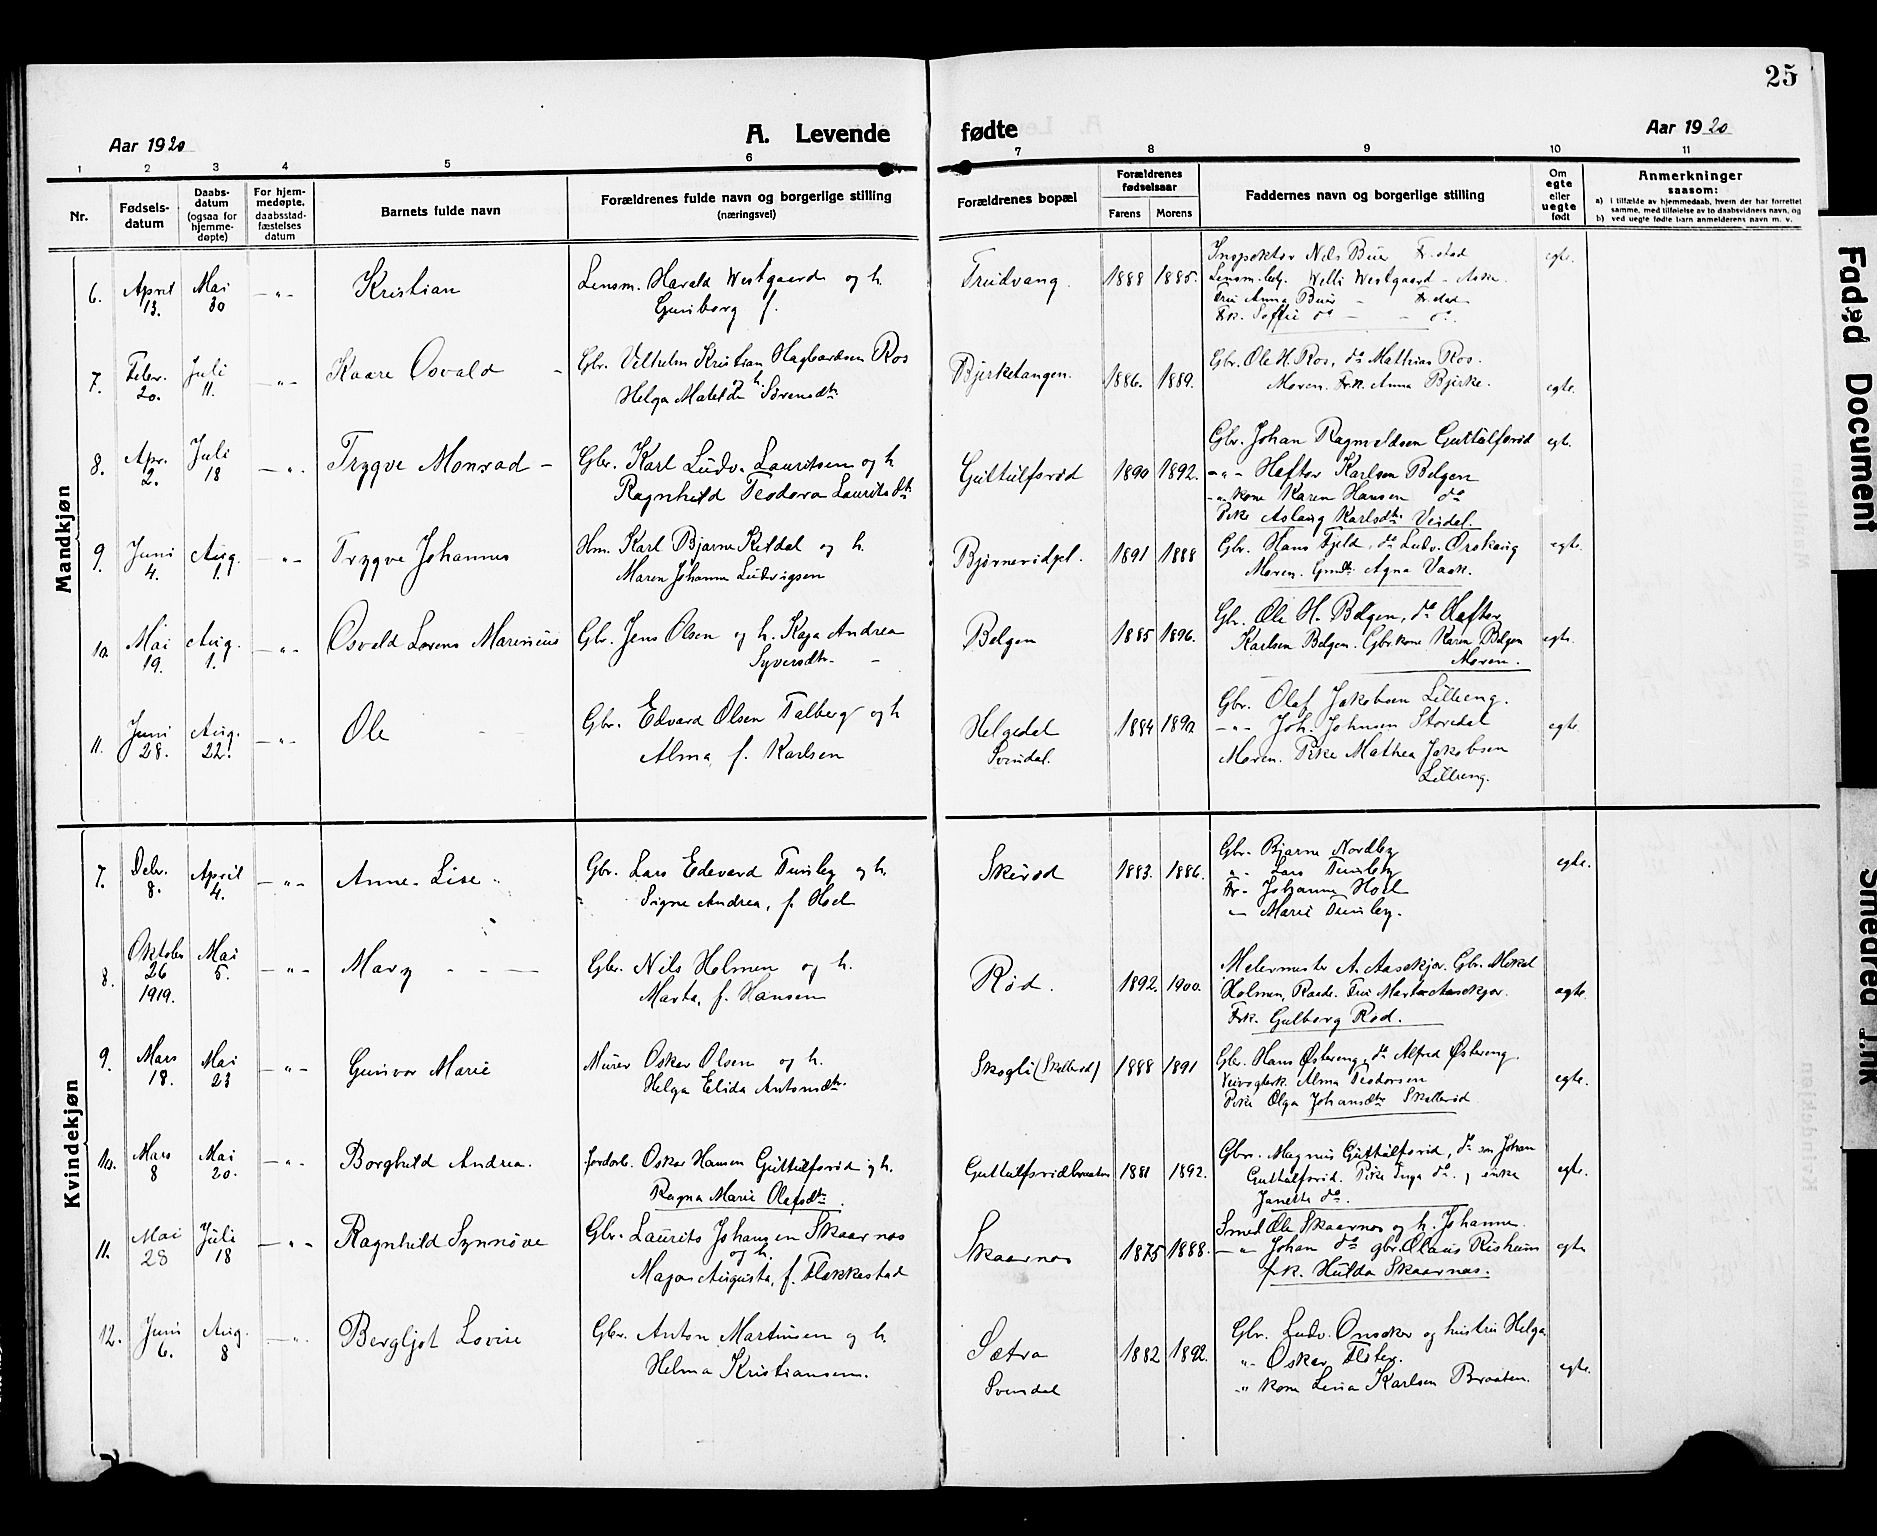 25
Aar 1920
A. Levende fødte
Aar 1920
1 2 3 4 5 6 7 8 9 10 11
Nr.
Fødsels-
datum
Daabs-
datum
(ogsaa for
hjemme-
døpte)
For hjem-
medøpte.
daabsstad-
fæstelses
datum
Barnets fulde navn
Forældrenes fulde navn og borgerlige stilling
(næringsvei)
Forældrenes bopæl
Forældrenes
fødselsaar
Farens Morens
Faddernes navn og borgerlige stilling
Om
egte
eller
uegte
født
Anmerkninger
saasom:
a) i tilfælde av hjemmedaab, hvem der har forrettet
samme, med tilføielse av to daabsvidners navn, og
b) ved uegte fødte barn anmelderens navn m. v.
Mandkjøn
6. April 13. Mai 30 — „ — Kristian
Lensm. Harald Westgaard og h.
Gunborg f.
Fridvang. 1888 1885.
Inspektør Nils Buer Fr.stad
Lensm.betj. Willi Westgaard - Aske.
Fru Anna Buer - Fr.stad
Frk. Soffie do — - do.
egte.
7. Febr. 20. Juli 11. — „ Kaare Osvald
Gbr. Vilhelm Kristian Hagbardsen Ros
Helga Matilde h. Sørensdtr
Bjerketangen. 1886. 1889.
Gbr. Ole H. Ros, do Matthias Ros.
Moren. Frk. Anna Bjerke.
egte.
8. Apr. 2. Juli 18 — „ . Trygve Monrad —
Gbr. Karl Ludv. Lauritsen og h
Ragnhild Teodora Lauritsdtr
Guttulfsrød 1890 1892.
Gbr. Johan Ragnvldsen Guttulfsrød
— „ - Heftor Karlsen Bølgen
- „ kone Karen Hansen do
Pike Aslaug Karlsdtr. Veidal.
egte.
9. Juni 4. Aug. 1. — „ — Trygve Johannes
Hm. Karl Bjarne Kildal og h.
Maren Johanne Ludvigsen
Bjørnerødpl. 1891 1888
Gbr. Hans Fjeld, do Ludv. Ørskaug
Moren. Gmdtr. Agna Vaak.
egte.
10. Mai 19. Aug. 1. — „ — Osvald Lorens Marinius
Gbr. Jens Olsen og h. Kaja Andrea
Syversdtr. —
Bølgen 1885 1896.
Gbr. Ole H. Bølgen, do Haftor
Karlsen Bølgen. Gbr.kone Karen Bølgen
Moren.
egte.
11. Juni 28. Aug. 22. — „ — Ole
Gbr. Edvard Olsen Talberg og h
Alma, f. Karlsen
Helgedal
Svindal.
1884 1892
Gbr. Olaf Jakobsen Lilleeng.
— „ - Joh. Johnsen Storedal
Moren. Pike Mathea Jakobsen
Lilleeng.
egte
Kvindekjøn
7. Debr. 8. April 4. — „ — Anne-Lise.
Gbr. Lars Edevard Tunsby og h.
Signe Andrea, f. Hoel
Skirød 1883. 1886.
Gbr. Bjarne Nordby
„ - Lars Tunsby
Fr- Johanne Hoel
— Marie Tunsby.
egte.
8. Oktober 26 1919. Mai 5. — „ — Mary - - —
Gbr. Nils Holmen og h.
Marta, f. Hansen
Rød. 1892. 1900.
Malermester A. Aasekjær. Gbr. Mikal
Holmen, Raade. Fru Marta Aasekjær.
Frk. Gulborg Rød.
egte.
9. Mars 18. Mai 23 — „ — Gunvor Marie
Murer Oskar Olsen og h.
Helga Elida Antonsdtr.
Skogli (Skallerød) 1888 1891
Gbr. Hans Østereng, do Alfred Østereng.
Veivogterk. Alma Teodorsen
Pike Olga Johansdtr Skallerød
egte.
10. Mars 8 Mai 20. — „ . Borghild Andrea.
Jordarb. Oskar Hansen Guttulfsrød og h.
Ragna Marie Olafsdtr.
Guttulfsrødbraaten 1881 1892.
Gbr. Magnus Guttulfsrød, do søn Johan
Guttulfsrød. Pike Inga do., enke
Janette do.
egte.
11. Mai 28 Juli 18 — „ — Ragnhild Synnøve
Gbr. Laurits Johansen Skaarnes
og h.
Maja Augusta, f. Flakkestad
Skaarnes 1875 1888.
Smed Ole Skaarnes og h. Johanne.
— „ Johan do gbr. Olaus Risheim
frk. Hulda Skaarnes.
egte
12. Juni 6. Aug. 8 — „ . Bergljot Lovise
Gbr. Anton Martinsen og h.
Helma Kristiansen.
Sætra
Svindal
1882 1892.
Gbr. Ludv. Onsaker og hustru Helga.
„ - Oskar Flater.
„ kone Lina Karlsen Braaten.
egte.
Faded Document
Smeared Ink